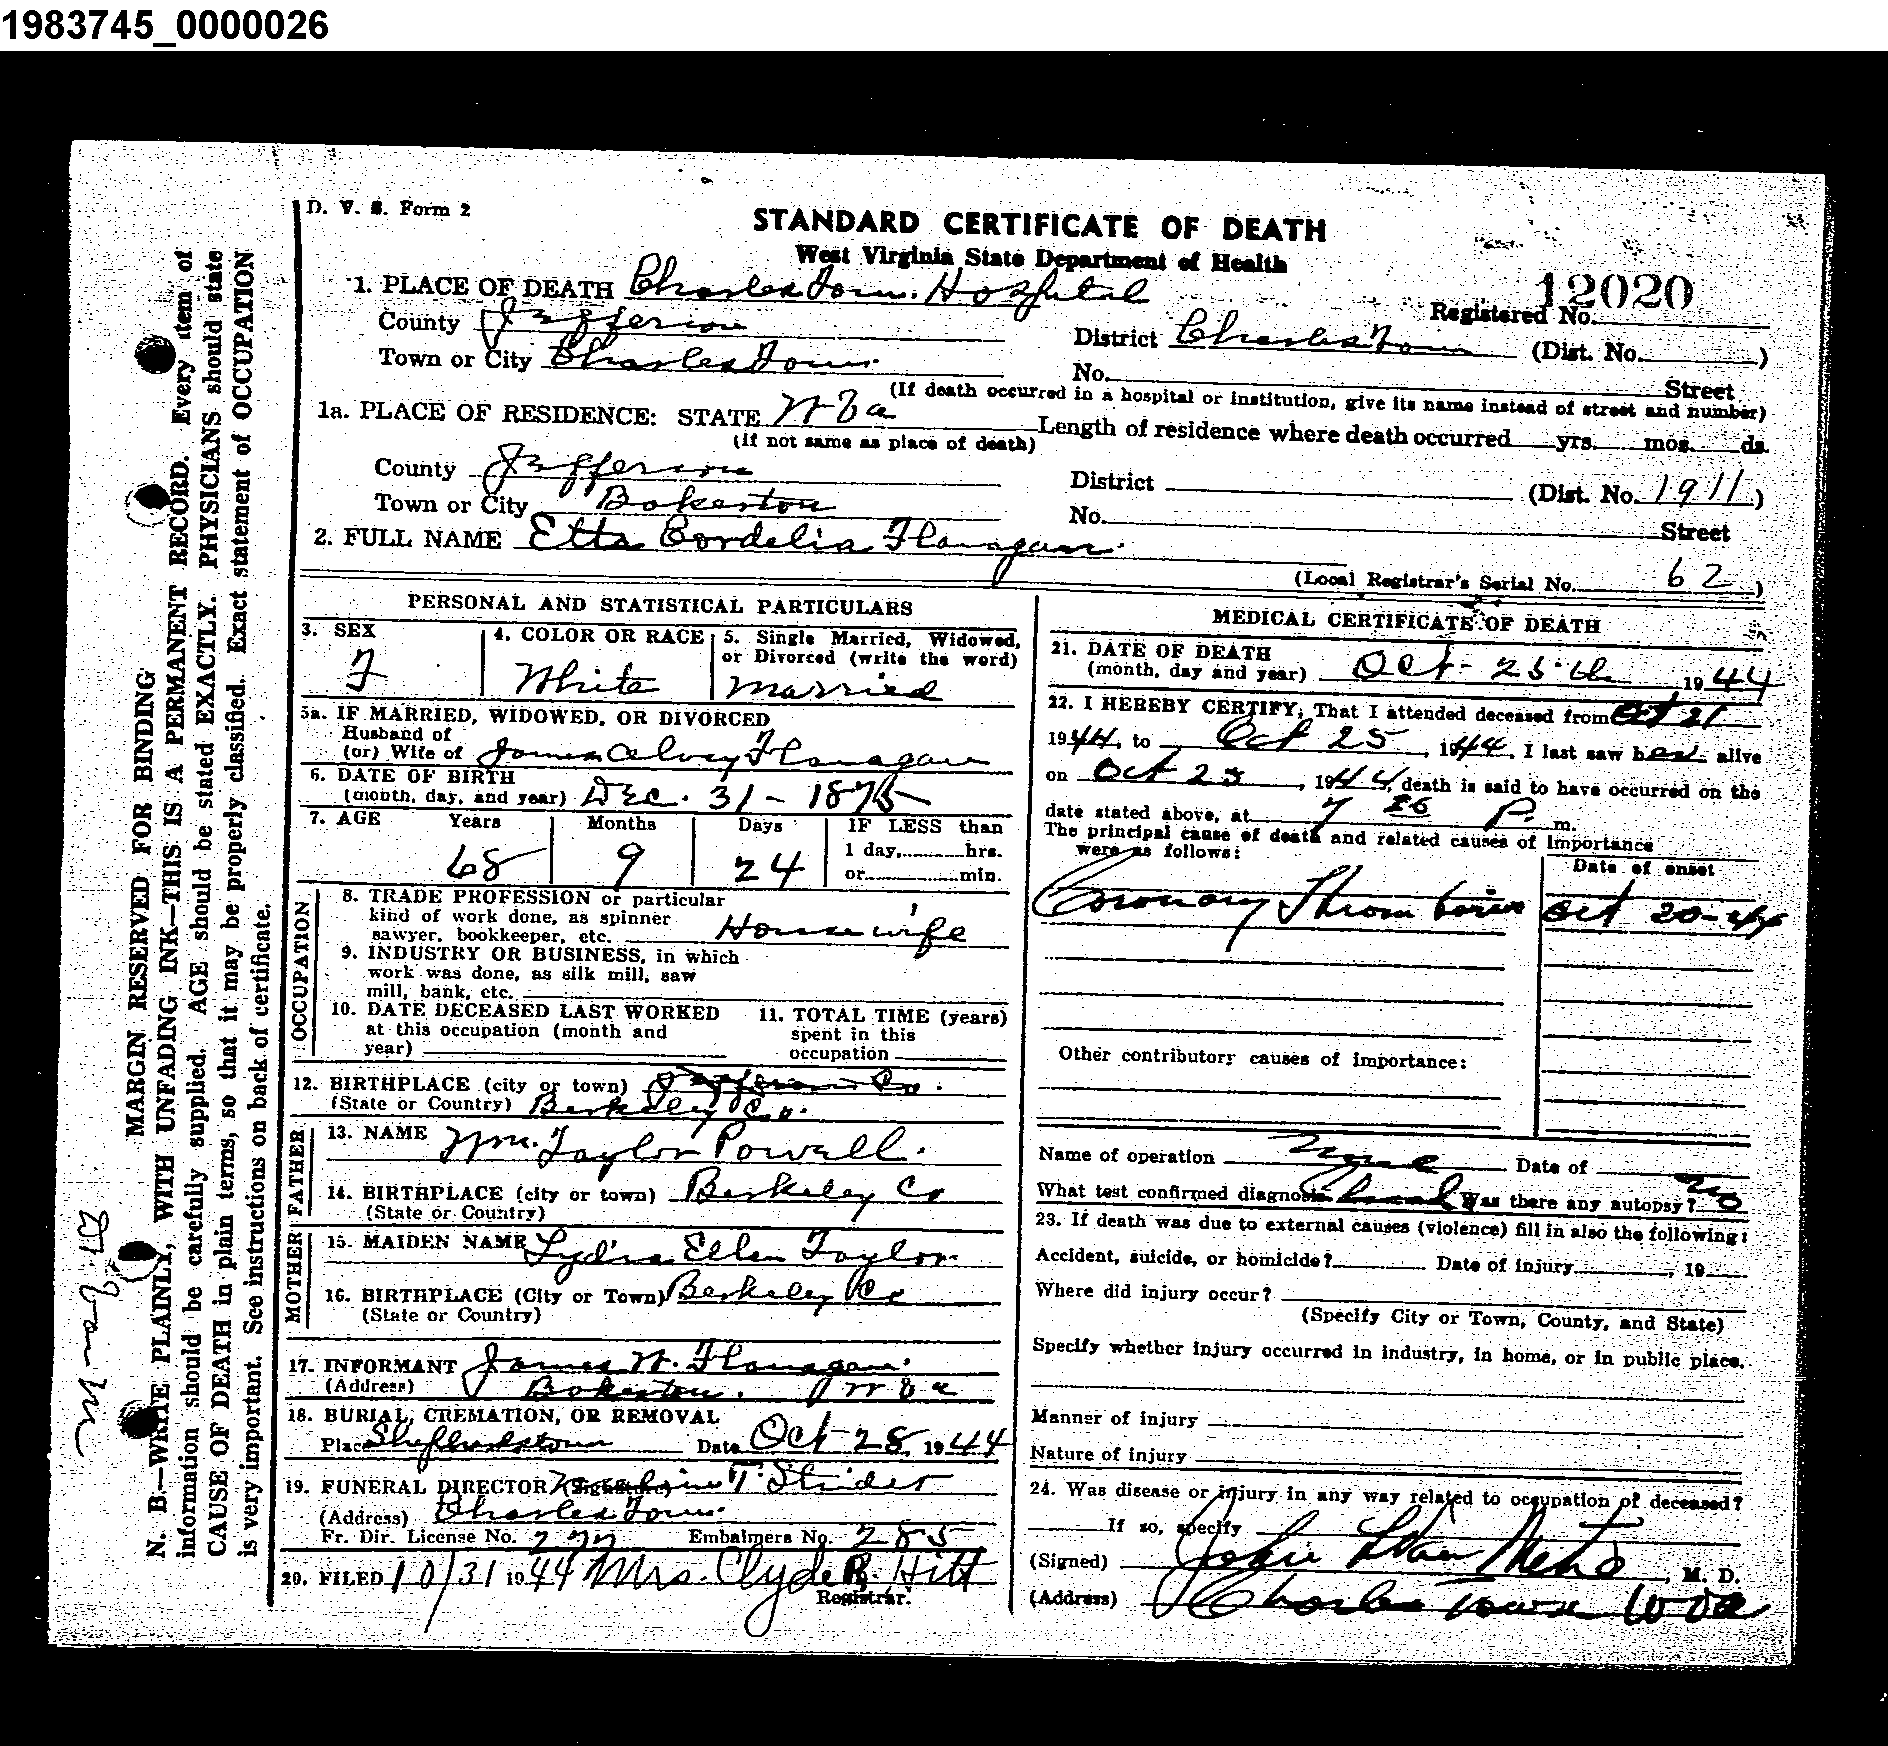 1983745_0000026
D. V. S. Form 2
STANDARD CERTIFICATE OF DEATH
West Virginia State Department of Health
12020
1. PLACE OF DEATH Charles Town Hospital
Registered No.
County Jefferson
District Charles Town (Dist. No. )
Town or City Charles Town
No. Street
(If death occurred in a hospital or institution, give its name instead of street and number)
1a. PLACE OF RESIDENCE: STATE W Va
(If not same as place of death)
Length of residence where death occurred yrs. mos. ds.
County Jefferson
District (Dist. No. 1911)
Town or City Bakerton
No. Street
2. FULL NAME Etta Cordelia Flanagan
(Local Registrar's Serial No. 62)
PERSONAL AND STATISTICAL PARTICULARS
3. SEX
F
4. COLOR OR RACE
White
5. Single Married, Widowed,
or Divorced (write the word)
Married
5a. IF MARRIED, WIDOWED, OR DIVORCED
Husband of
(or) Wife of James Alvey Flanagan
6. DATE OF BIRTH
(month, day, and year) Dec. 31 - 1875
7. AGE Years Months Days IF LESS than
1 day, hrs.
or min.
68 9 24
OCCUPATION
8. TRADE PROFESSION or particular
kind of work done, as spinner
sawyer, bookkeeper, etc. Housewife
9. INDUSTRY OR BUSINESS, in which
work was done, as silk mill, saw
mill, bank, etc.
10. DATE DECEASED LAST WORKED
at this occupation (month and
year)
11. TOTAL TIME (years)
spent in this
occupation
12. BIRTHPLACE (city or town) Jefferson Co.
(State or Country) Berkeley Co.
FATHER
13. NAME Wm. Taylor Powell.
14. BIRTHPLACE (city or town) Berkeley Co
(State or Country)
MOTHER
15. MAIDEN NAME Lydia Ellen Taylor
16. BIRTHPLACE (City or Town) Berkeley Co
(State or Country)
17. INFORMANT James W. Flanagan
(Address) Bakerton. W Va
18. BURIAL, CREMATION, OR REMOVAL
Place Shepherdstown Date Oct 28 1944
19. FUNERAL DIRECTOR T. Strider
(Address) Charles Town
Fr. Dir. License No. 277 Embalmers No. 285
20. FILED 10/31 1944 Mrs. Clyde R. Hitt
Registrar.
MEDICAL CERTIFICATE OF DEATH
21. DATE OF DEATH
(month, day and year) Oct - 25th 1944
22. I HEREBY CERTIFY, That I attended deceased from Oct 21
1944, to Oct 25, 1944. I last saw her alive
on Oct 25, 1944, death is said to have occurred on the
date stated above, at 7 26 P. m.
The principal cause of death and related causes of importance
were as follows:
Date of onset
Coronary Thrombosis Oct 20-44
Other contributory causes of importance:
Name of operation None Date of
What test confirmed diagnosis Was there any autopsy? No
23. If death was due to external causes (violence) fill in also the following:
Accident, suicide, or homicide? Date of injury , 19
Where did injury occur?
(Specify City or Town, County, and State)
Specify whether injury occurred in industry, in home, or in public place.
Manner of injury
Nature of injury
24. Was disease or injury in any way related to occupation of deceased?
If so, specify
(Signed) John , M. D.
(Address) Charles Town W Va
MARGIN RESERVED FOR BINDING
N. B.—WRITE PLAINLY, WITH UNFADING INK—THIS IS A PERMANENT RECORD. Every item of
information should be carefully supplied. AGE should be stated EXACTLY. PHYSICIANS should state
CAUSE OF DEATH in plain terms, so that it may be properly classified. Exact statement of OCCUPATION
is very important. See instructions on back of certificate.